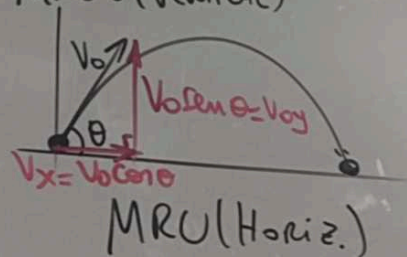 V₀
V₀senθ=V₀y
θ
Vx=V₀cosθ
MRU(HORIZ.)